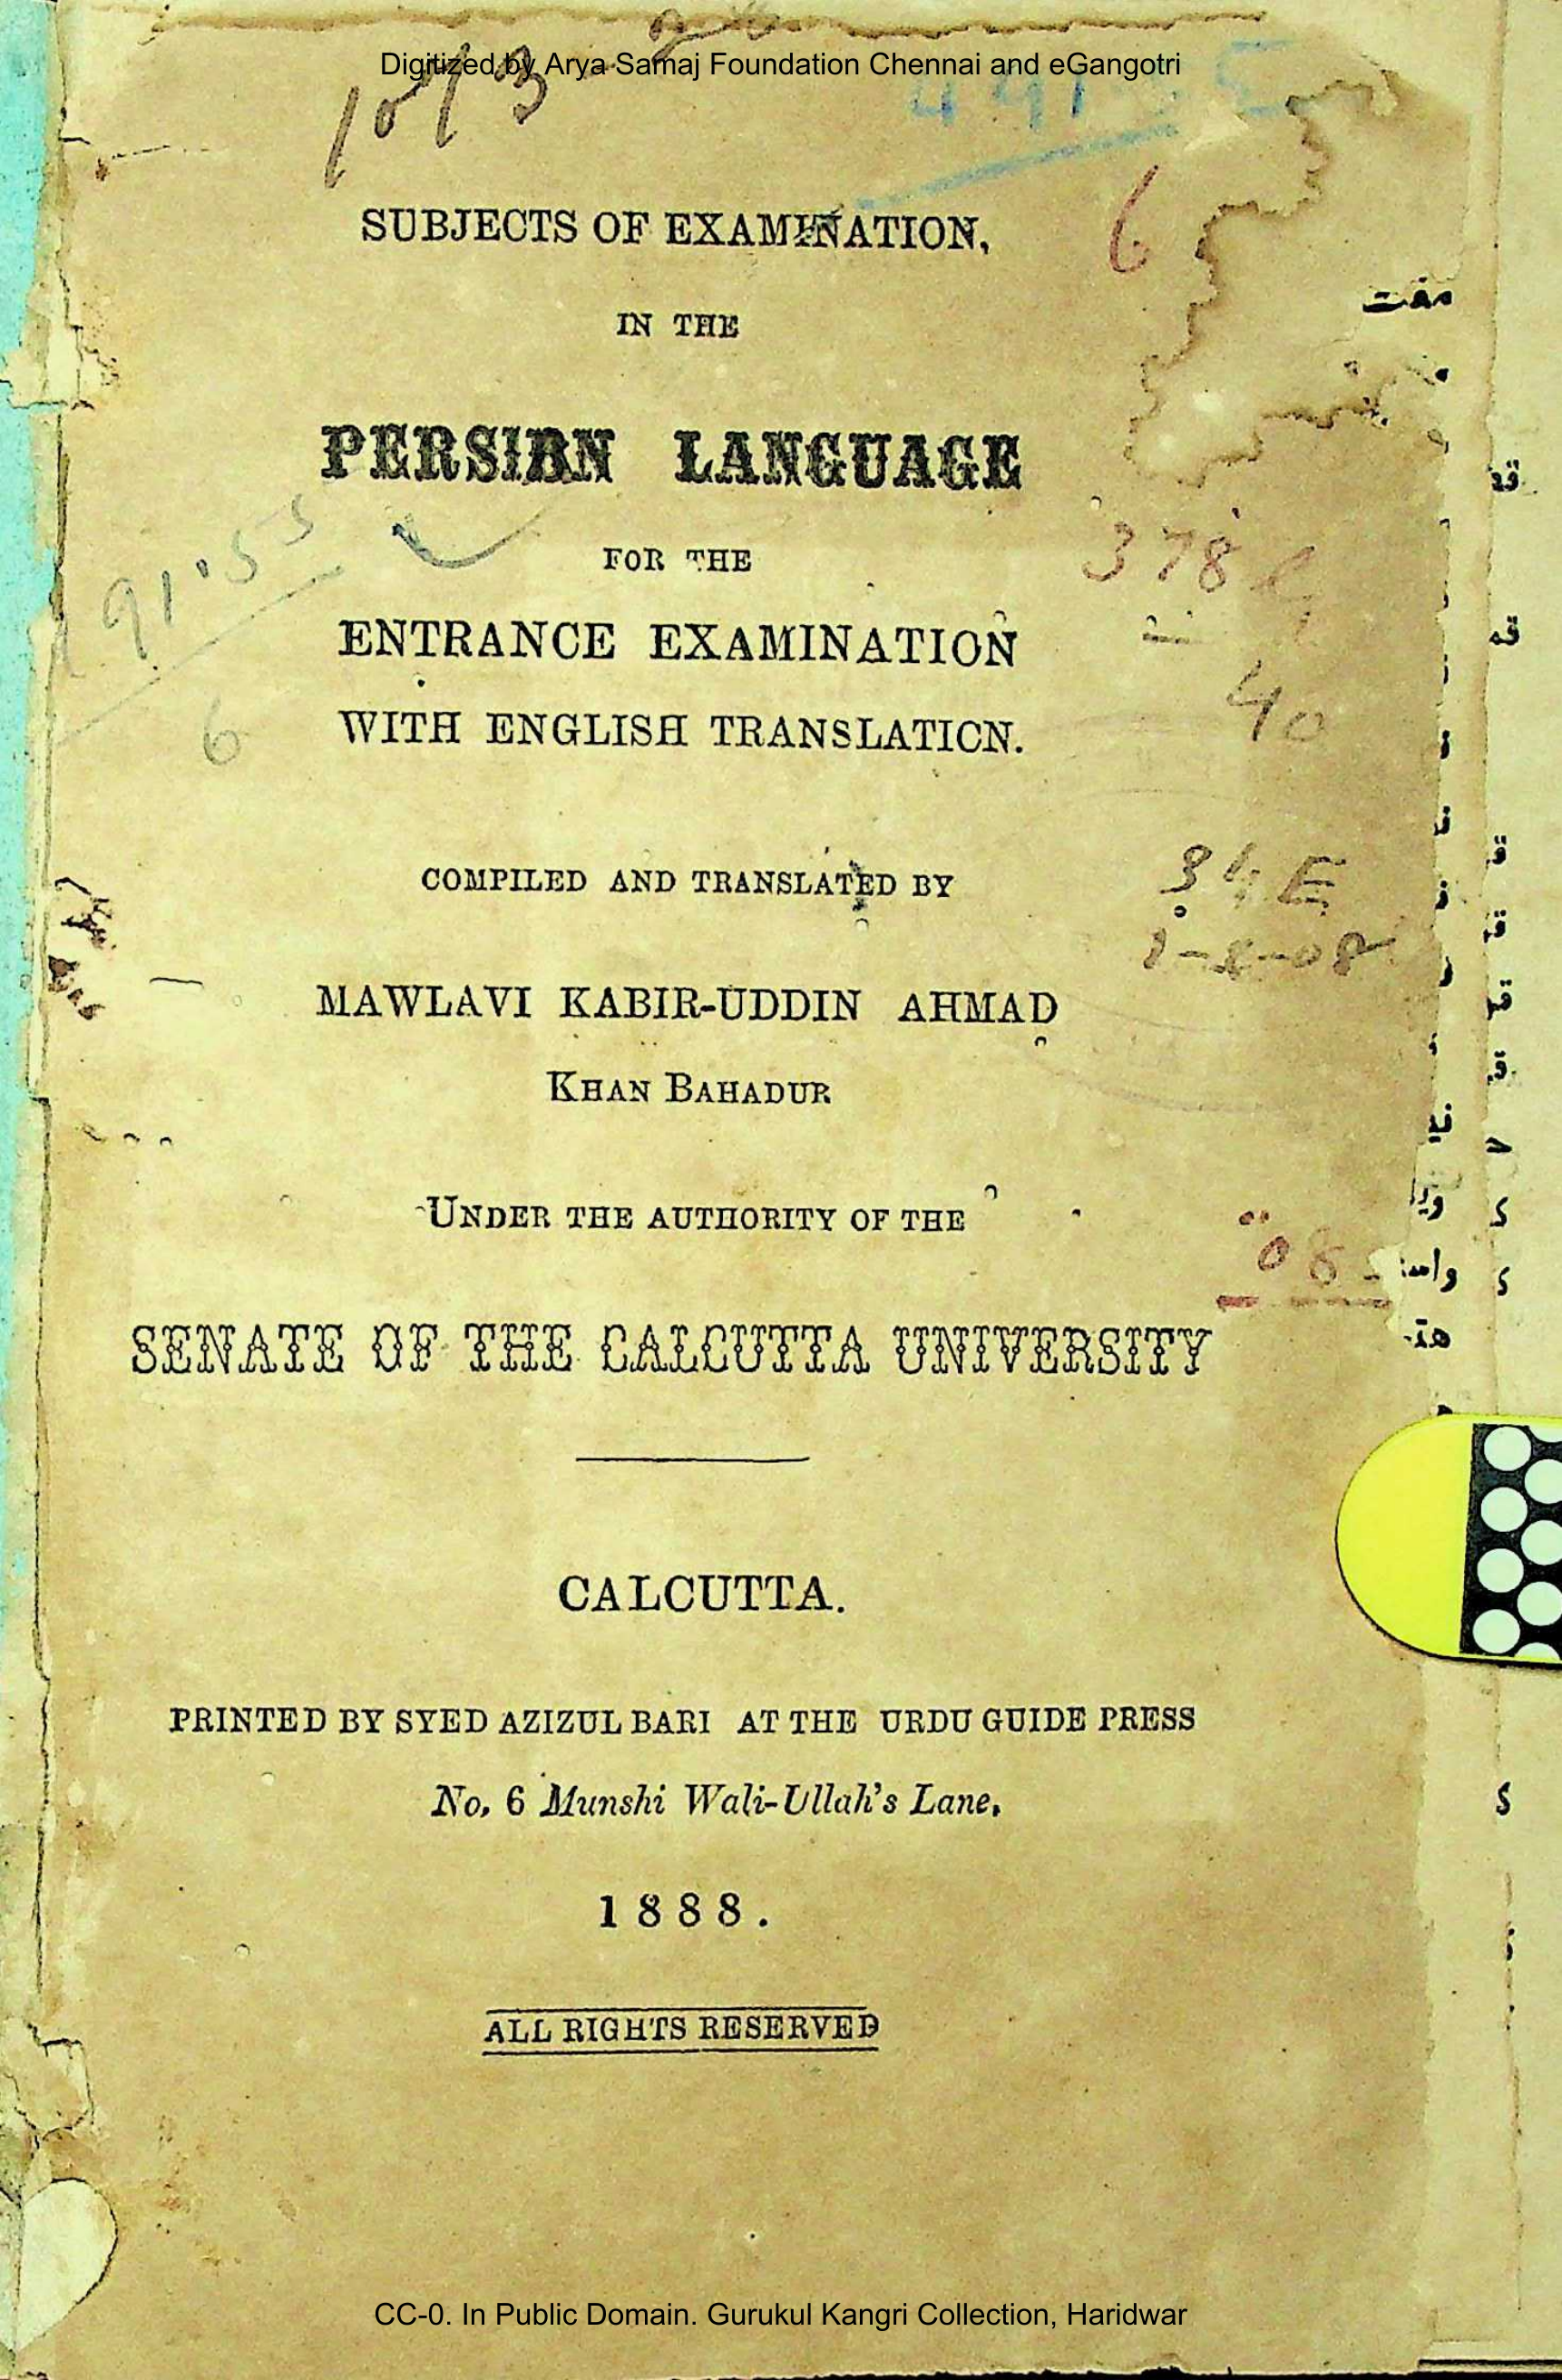 Digitized by Arya Samaj Foundation Chennai and eGangotri
6
SUBJECTS OF EXAMINATION,
مفت
IN THE
PERSIAN LANGUAGE
91.55
6
FOR THE
378
ENTRANCE EXAMINATION
40
WITH ENGLISH TRANSLATION.
COMPILED AND TRANSLATED BY
MAWLAVI KABIR-UDDIN AHMAD
KHAN BAHADUR
UNDER THE AUTHORITY OF THE
SENATE OF THE CALCUTTA UNIVERSITY
CALCUTTA.
PRINTED BY SYED AZIZUL BARI AT THE URDU GUIDE PRESS
No. 6 Munshi Wali-Ullah's Lane,
1888.
ALL RIGHTS RESERVED
CC-0. In Public Domain. Gurukul Kangri Collection, Haridwar